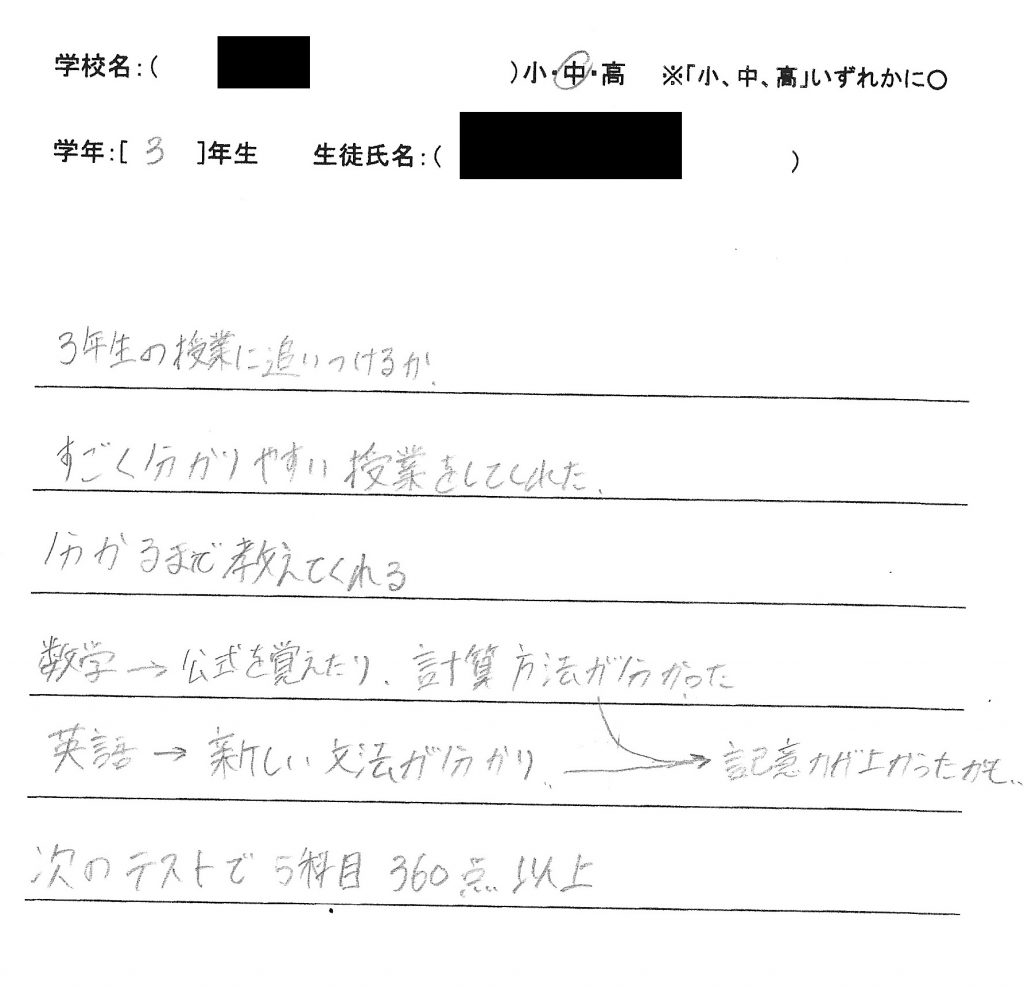 学校名:( )小・中・高 ※「小、中、高」いずれかに〇
学年:[ 3 ]年生 生徒氏名:( )
3年生の授業に追いつけるか.
すごく分かりやすい授業をしてくれた.
分かるまで教えてくれる
数学→公式を覚えたり、計算方法が分かった
英語→新しい文法が分かり、、→記憶力が上がったかも、、
次のテストで5科目360点以上